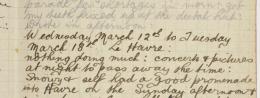 parade for
my teeth
Wednesday March 12th to Tuesday
March 18th Le Havre:
nothing doing much: concerts & pictures
at night to pass away the time:
Snowy & self had a good promenade
into Havre on the Sunday afternoon &